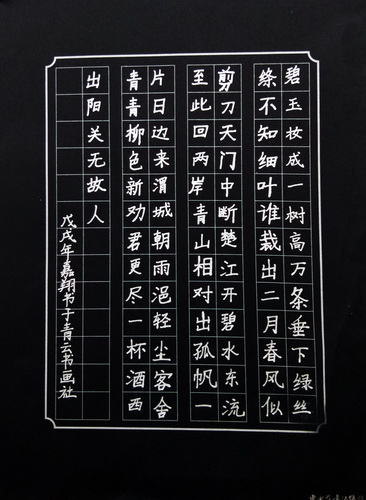 碧玉妆成一树高万条垂下绿丝
绦不知细叶谁裁出二月春风似
剪刀天门中断楚江开碧水东流
至此回两岸青山相对出孤帆一
片日边来渭城朝雨浥轻尘客舍
青青柳色新劝君更尽一杯酒西
出阳关无故人
戊戌年嘉翔书于青云书画社